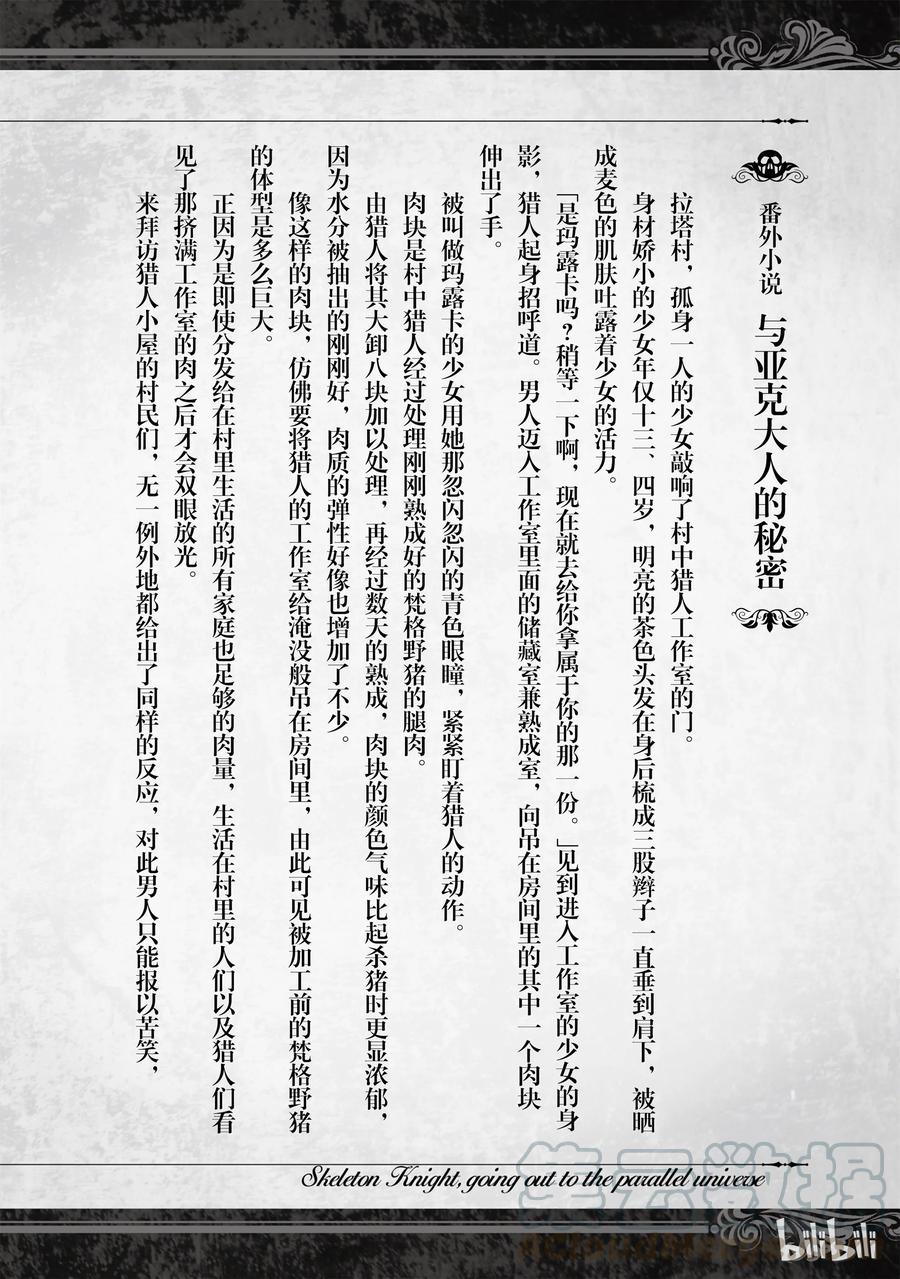 番外小说 与亚克大人的秘密
拉塔村，孤身一人的少女敲响了村中猎人工作室的门。
身材娇小的少女年仅十三、四岁，明亮的茶色头发在身后梳成三股辫子一直垂到肩下，被晒
成麦色的肌肤吐露着少女的活力。
「是玛露卡吗？稍等一下啊，现在就去给你拿属于你的那一份。」见到进入工作室的少女的身
影，猎人起身招呼道。男人迈入工作室里面的储藏室兼熟成室，向吊在房间里的其中一个肉块
伸出了手。
被叫做玛露卡的少女用她那忽闪忽闪的青色眼瞳，紧紧盯着猎人的动作。
肉块是村中猎人经过处理刚刚熟成好的梵格野猪的腿肉。
由猎人将其大卸八块加以处理，再经过数天的熟成，肉块的颜色气味比起杀猪时更显浓郁，
因为水分被抽出的刚刚好，肉质的弹性好像也增加了不少。
像这样的肉块，仿佛要将猎人的工作室给淹没般吊在房间里，由此可见被加工前的梵格野猪
的体型是多么巨大。
正因为是即使分发给在村里生活的所有家庭也足够的肉量，生活在村里的人们以及猎人们看
见了那挤满工作室的肉之后才会双眼放光。
来拜访猎人小屋的村民们，无一例外地都给出了同样的反应，对此男人只能报以苦笑，
Skeleton Knight, going out to the parallel universe
bilibili